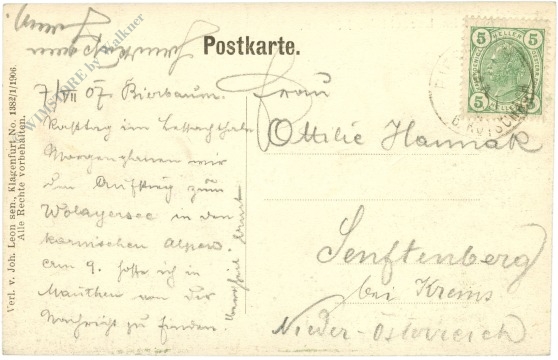 Postkarte.
5 HELLER 5
5 5
7/VII 07. Bierbaum.
Rasttag im Lessachthale
Morgen
den Aufstieg zum
Wolayersee in den
karnischen Alpen.
am 9. hoffe ich in
Mauthen von Dir
Nachricht zu finden.
Frau
Ottilie Hannak
Senftenberg
bei Krems
Nieder-Österreich
Verl. v. Joh. Leon sen., Klagenfurt, No. 1382/1/1906.
Alle Rechte vorbehalten.
WIMSTORE by Falkner